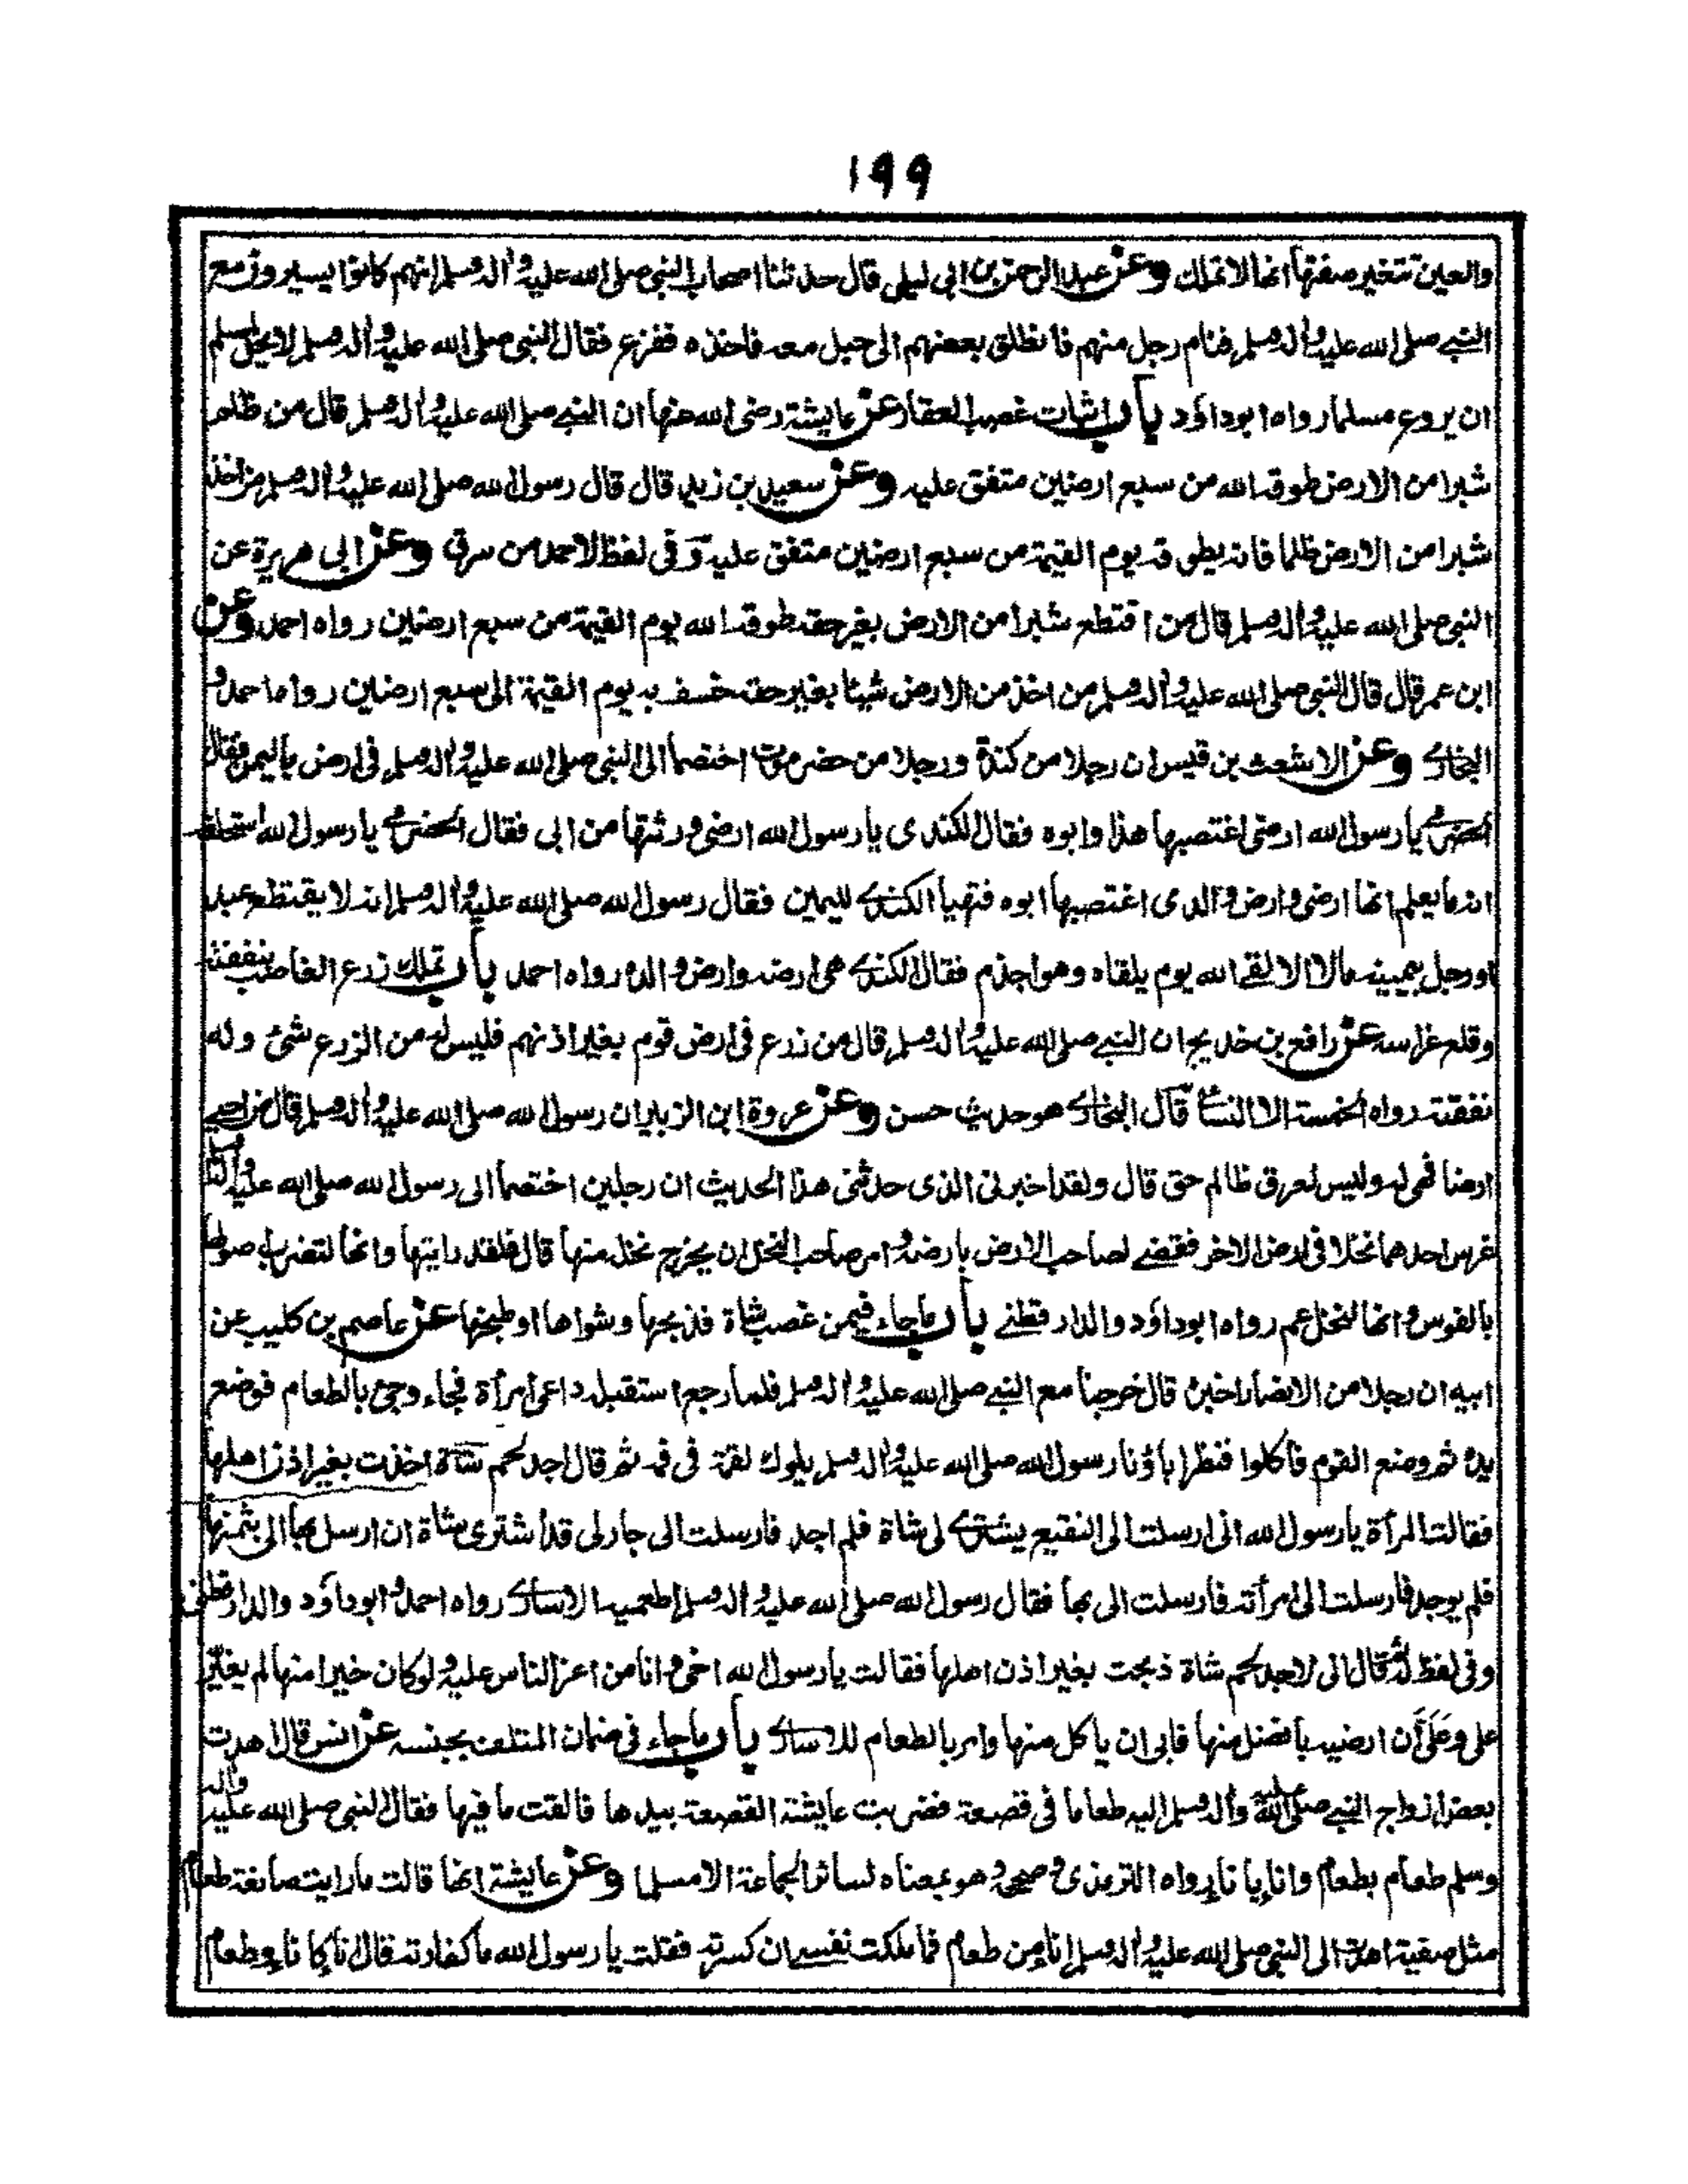 ١٩٩
والعين تتغير صفتها انها لا تملك وعن عبد الرحمن بن ابى ليلى قال حدثنا اصحاب النبى صلى الله عليه واله وسلم انهم كانوا يسيرون مع
النبى صلى الله عليه واله وسلم فنام رجل منهم فانطلق بعضهم الى حبل معه فاخذه ففزع فقال النبى صلى الله عليه واله وسلم لا يحل لمسلم
ان يروع مسلما رواه ابوداؤد باب اثبات غصب العقار عن عايشة رضى الله عنها ان النبى صلى الله عليه واله وسلم قال من ظلم
شبرا من الارض طوقه الله من سبع ارضين متفق عليه وعن سعيد بن زيد قال قال رسول الله صلى الله عليه واله وسلم من اخذ
شبرا من الارض ظلما فانه يطوقه يوم القيمة من سبع ارضين متفق عليه وفى لفظ لاحمد من سرق وعن ابى هريرة عن
النبى صلى الله عليه واله وسلم قال من اقتطع شبرا من الارض بغير حقه طوقه الله يوم القيمة من سبع ارضين رواه احمد وعن
ابن عمر قال قال النبى صلى الله عليه واله وسلم من اخذ من الارض شيئا بغير حقه خسف به يوم القيمة الى سبع ارضين رواه احمد و
البخارى وعن الاشعث بن قيس ان رجلا من كندة ورجلا من حضرموت اختصما الى النبى صلى الله عليه واله وسلم فى ارض باليمن فقال
الحضرمى يا رسول الله ارضى اغتصبها هذا وابوه فقال الكندى يا رسول الله ارضى ورثتها من ابى فقال الحضرمى يا رسول الله استحلفه
انه ما يعلم انها ارضى وارض والدى اغتصبها ابوه فتهيأ الكندى لليمين فقال رسول الله صلى الله عليه واله وسلم انه لا يقتطع عبد
او رجل بيمينه مالا الا لقى الله يوم يلقاه وهو اجذم فقال الكندى هى ارضه وارض والده رواه احمد باب تملك زرع الغاصب بنفقته
وقلع غراسه عن رافع بن خديج ان النبى صلى الله عليه واله وسلم قال من زرع فى ارض قوم بغير اذنهم فليس له من الزرع شئ وله
نفقته رواه الخمسة الا النسائى قال البخارى هو حديث حسن وعن عروة ابن الزبير ان رسول الله صلى الله عليه واله وسلم قال من احيى
ارضا فهى له وليس لعرق ظالم حق قال ولقد اخبرنى الذى حدثنى هذا الحديث ان رجلين اختصما الى رسول الله صلى الله عليه واله وسلم
غرس احدهما نخلا فى ارض الاخر فقضى لصاحب الارض بارضه وامر صاحب النخل ان يخرج نخله منها قال فلقد رايتها وانها لتضرب اصولها
بالفوس وانها لنخل عم رواه ابوداؤد والدارقطنى باب ما جاء فيمن غصب شاة فذبحها وشواها او طبخها عن عاصم بن كليب عن
ابيه ان رجلا من الانصار اخبره قال خرجنا مع النبى صلى الله عليه واله وسلم فلما رجع استقبله داعى امرأة فجاء وجئ بالطعام فوضع
يده ثم وضع القوم فاكلوا فنظر اباؤنا رسول الله صلى الله عليه واله وسلم يلوك لقمة فى فمه ثم قال اجد لحم شاة اخذت بغير اذن اهلها
فقالت المرأة يا رسول الله انى ارسلت الى النقيع يشترى لى شاة فلم اجد فارسلت الى جار لى قد اشترى شاة ان ارسل بها الى بثمنها
فلم يوجد فارسلت الى امرأته فارسلت الى بها فقال رسول الله صلى الله عليه واله وسلم اطعميه الاسارى رواه احمد وابوداؤد والدارقطنى
وفى لفظ له ثم قال انى لاجد لحم شاة ذبحت بغير اذن اهلها فقالت يا رسول الله اخى وانا من اعز الناس عليه ولو كان خيرا منها لم يغير
على وعلى ان ارضيه بافضل منها فابى ان ياكل منها وامر بالطعام للاسارى باب ما جاء فى ضمان المتلف بجنسه عن انس قال اهدت
بعض ازواج النبى صلى الله عليه واله وسلم اليه طعاما فى قصعة فضربت عايشة القصعة بيدها فالقت ما فيها فقال النبى صلى الله عليه واله
وسلم طعام بطعام واناء باناء رواه الترمذى وصححه وهو بمعناه لسائر الجماعة الا مسلما وعن عايشة انها قالت ما رايت صانعة طعام
مثل صفية اهدت الى النبى صلى الله عليه واله وسلم اناء من طعام فما ملكت نفسى ان كسرته فقلت يا رسول الله ما كفارته قال اناء كاناء وطعام